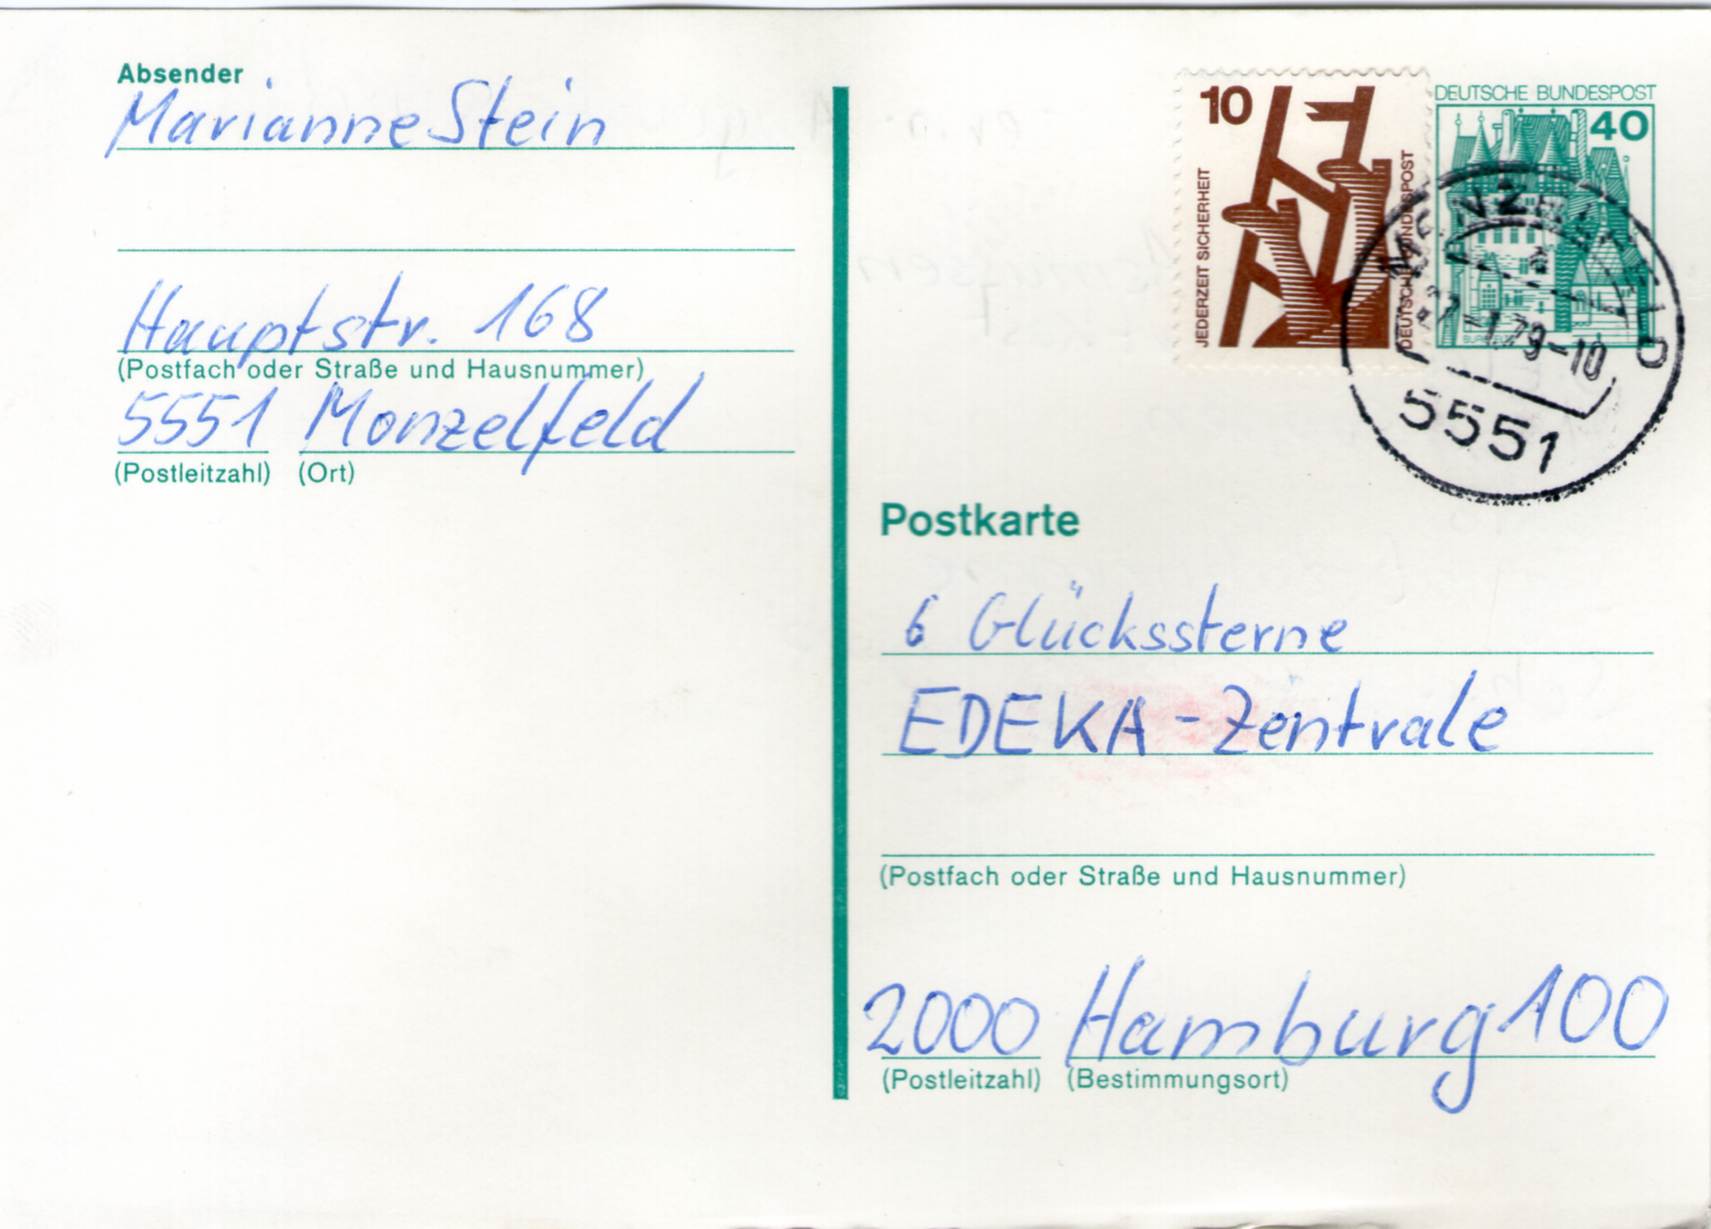 Absender
Marianne Stein
Hauptstr. 168
(Postfach oder Straße und Hausnummer)
5551 Monzelfeld
(Postleitzahl) (Ort)
10
JEDERZEIT SICHERHEIT
DEUTSCHE BUNDESPOST
DEUTSCHE BUNDESPOST
40
MONZELFELD
79-10
5551
Postkarte
6 Glückssterne
EDEKA-Zentrale
(Postfach oder Straße und Hausnummer)
2000 Hamburg 100
(Postleitzahl) (Bestimmungsort)